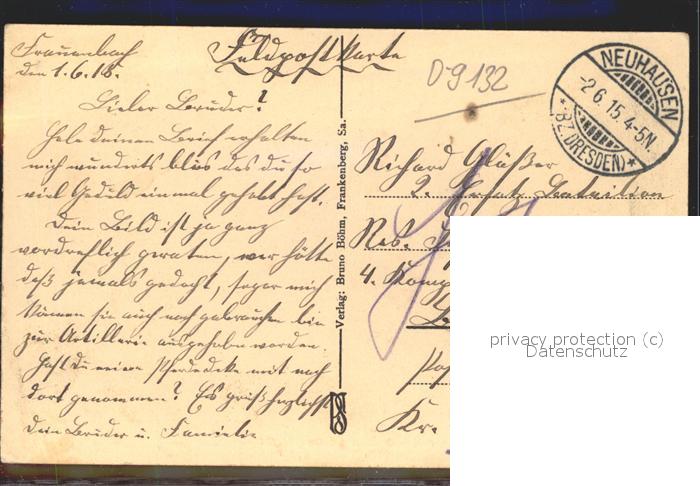 Frauenbach
den 1.6.18.
Feldpostkarte
D-9132
NEUHAUSEN
-2 6. 15. 4-5N.
*BZ. DRESDEN*
Lieber Bruder!
Habe deinen Brief erhalten
mich wunderts blos das du so
viel Geduld einmal gehabt hast.
Dein Bild ist ja ganz
vordrefflich geraten, wer hätte
daß jemals gedacht, sogar mich
können sie auch noch gebrauchen bin
zur Artillerie ausgehoben worden.
Hast du meine Pferdedecke mit nach
dort genommen? Es grüßt herzlichst
dein Bruder u. Familie
Verlag: Bruno Böhm, Frankenberg, Sa.
Richard Gläßer
2. Ersatz Bataillon
Res.
4. Komp
Kr.
privacy protection (c)
Datenschutz